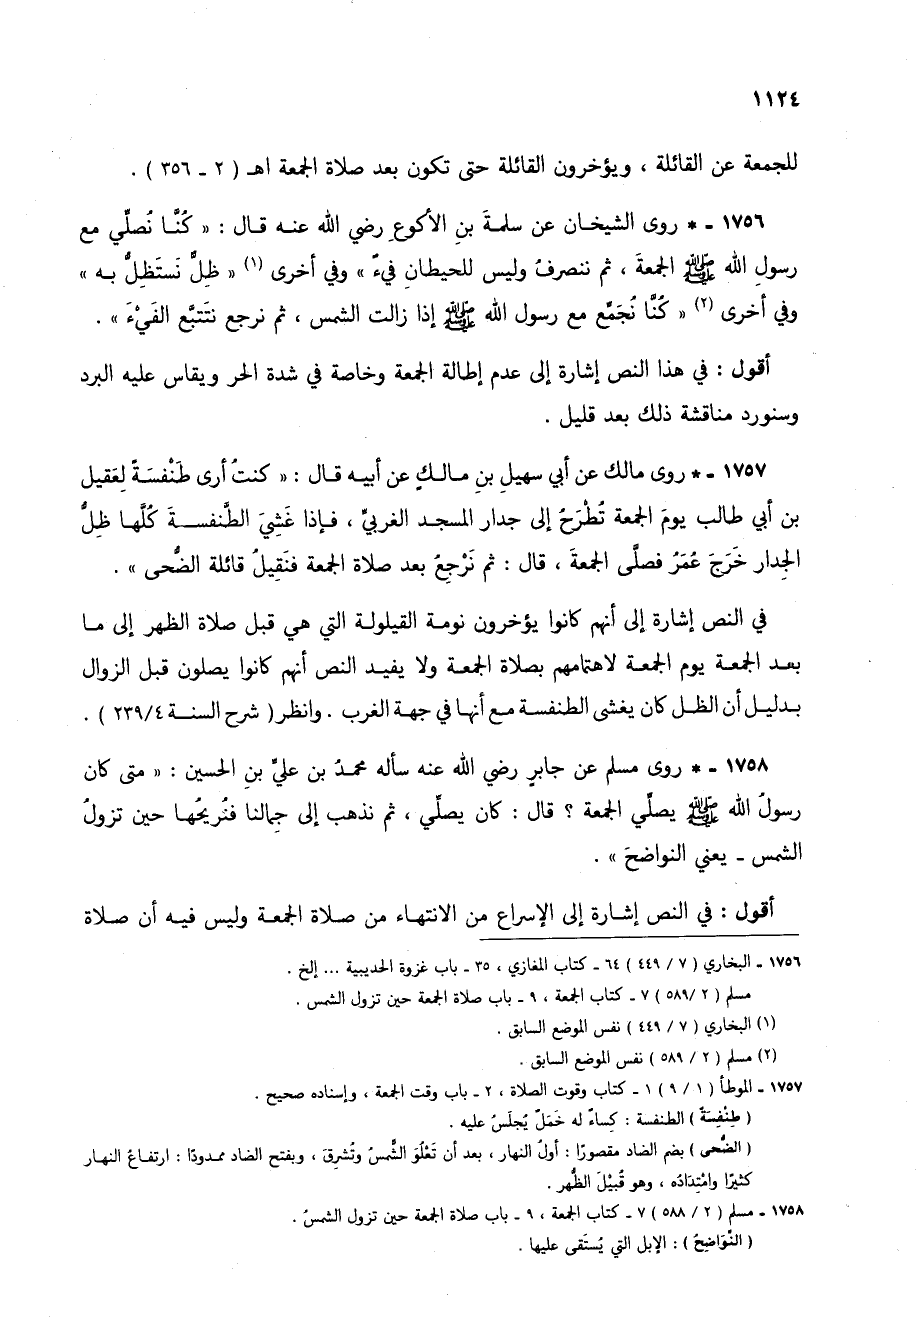 ١١٢٤
للجمعة عن القائلة ، ويؤخرون القائلة حتى تكون بعد صلاة الجمعة اهـ ( ٢ ـ ٣٥٦ ) .
١٧٥٦ ـ * روى الشيخان عن سلمةَ بنِ الأكوعِ رضي الله عنه قال : « كُنَّا نُصلِّي مع
رسولِ الله ﷺ الجمعةَ ، ثم ننصرفُ وليس للحيطانِ فيءٌ » وفي أخرى (١) « ظِلٌّ نَستَظِلُّ به »
وفي أخرى (٢) « كُنَّا نُجَمِّع مع رسول الله ﷺ إذا زالت الشمس ، ثم نرجع نَتَتبَّع الفَيْءَ » .
أقول : في هذا النص إشارة إلى عدم إطالة الجمعة وخاصة في شدة الحر ويقاس عليه البرد
وسنورد مناقشة ذلك بعد قليل .
١٧٥٧ ـ * روى مالك عن أبي سهيلِ بنِ مالكٍ عن أبيه قال : « كنتُ أرى طَنْفسَةً لِعَقيل
بن أبي طالب يومَ الجمعة تُطْرَحُ إلى جدار المسجد الغربيِّ ، فإذا غَشِيَ الطَّنفسةَ كُلَّها ظِلُّ
الجِدار خَرَجَ عُمَرُ فصلَّى الجمعةَ ، قال : ثم نَرْجِعُ بعد صلاة الجمعة فنَقِيلُ قائلة الضُّحى » .
في النص إشارة إلى أنهم كانوا يؤخرون نومة القيلولة التي هي قبل صلاة الظهر إلى ما
بعد الجمعة يوم الجمعة لاهتمامهم بصلاة الجمعة ولا يفيد النص أنهم كانوا يصلون قبل الزوال
بدليل أن الظل كان يغشى الطنفسة مع أنها في جهة الغرب . وانظر ( شرح السنة ٢٣٩/٤ ) .
١٧٥٨ ـ * روى مسلم عن جابرٍ رضي الله عنه سأله محمدُ بن عليِّ بنِ الحسين : « متى كان
رسولُ الله ﷺ يصلِّي الجمعة ؟ قال : كان يصلِّي ، ثم نذهب إلى جِمالنا فنُريحُها حين تزولُ
الشمس ـ يعني النواضحَ » .
أقول : في النص إشارة إلى الإسراع من الانتهاء من صلاة الجمعة وليس فيه أن صلاة
١٧٥٦ ـ البخاري ( ٧ / ٤٤٩ ) ٦٤ ـ كتاب المغازي ، ٣٥ ـ باب غزوة الحديبية ... إلخ .
مسلم ( ٢ /٥٨٩ ) ٧ ـ كتاب الجمعة ، ٩ ـ باب صلاة الجمعة حين تزول الشمس .
(١) البخاري ( ٧ / ٤٤٩ ) نفس الموضع السابق .
(٢) مسلم ( ٢ / ٥٨٩ ) نفس الموضع السابق .
١٧٥٧ ـ الموطأ ( ١ / ٩ ) ١ ـ كتاب وقوت الصلاة ، ٢ ـ باب وقت الجمعة ، وإسناده صحيح .
( طِنْفِسَةٌ ) الطنفسة : كِساءٌ له خَمَلٌ يُجلَسُ عليه .
( الضُّحى ) بضم الضاد مقصورًا : أولُ النهار ، بعد أن تَعْلُوَ الشَّمسُ وتُشرِقَ ، وبفتح الضاد ممدودًا : ارتفاعُ النهار
كثيرًا وامْتِدَادُه ، وهو قُبَيْلَ الظُّهر .
١٧٥٨ ـ مسلم ( ٢ / ٥٨٨ ) ٧ ـ كتاب الجمعة ، ٩ ـ باب صلاة الجمعة حين تزول الشمسُ .
( النَّوَاضِحُ ) : الإبل التي يُستَقى عليها .